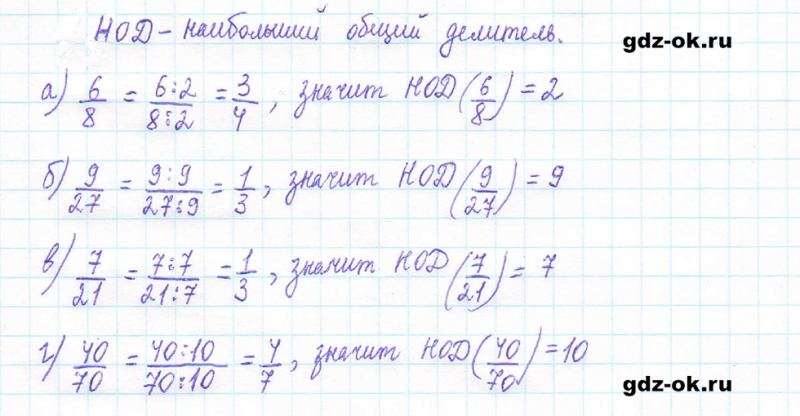 НОД - наибольший общий делитель.
gdz-ok.ru
а) 6/8 = 6:2/8:2 = 3/4, значит НОД(6/8) = 2
б) 9/27 = 9:9/27:9 = 1/3, значит НОД(9/27) = 9
в) 7/21 = 7:7/21:7 = 1/3, значит НОД(7/21) = 7
г) 40/70 = 40:10/70:10 = 4/7, значит НОД(40/70) = 10
gdz-ok.ru